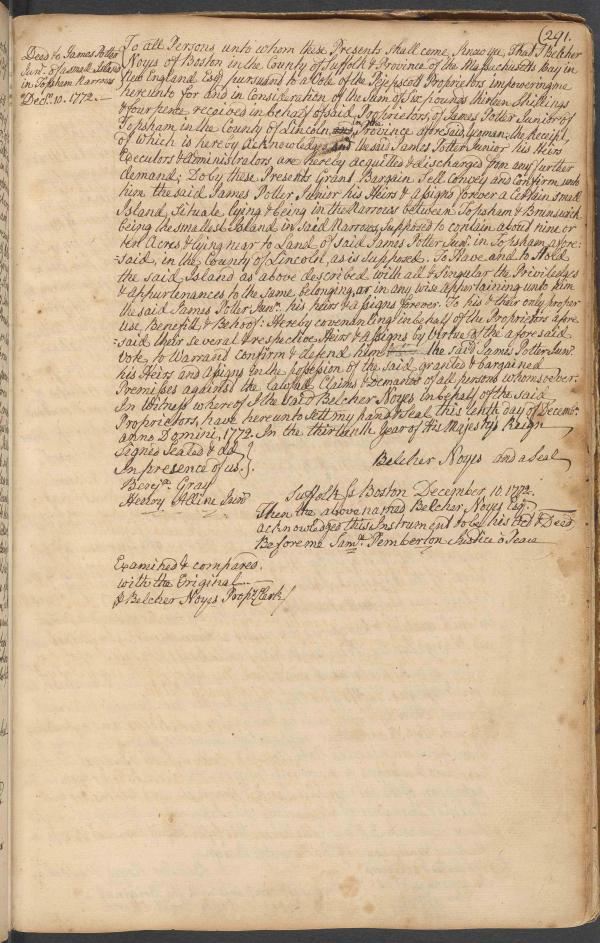 (291.
Deed to James Potter
Junr. of a small Island
in Topsham Narrows
Decr. 10. 1772.
To all Persons unto whom these Presents shall come, Know ye, That I Belcher
Noyes of Boston in the County of Suffolk & Province of the Massachusetts bay in
New England Esqr. pursuant to a Vote of the Pejepscott Proprietors impowering me
hereunto for and in Consideration of the Sum of Six pounds thirteen Shillings
& four pence received in behalf of said Proprietors, of James Potter Junior of
Topsham in the County of Lincoln and in the Province aforesaid yeoman, the Receipt,
of which is hereby Acknowledged, and the said James Potter Junior his Heirs
Executors & Administrators are hereby acquitted & discharged from any further
demand; Do by these Presents Grant Bargain Sell Convey and Confirm unto
him the said James Potter Junior his Heirs & Assigns forever a Certain small
Island, Situate lying & being in the Narrows between Topsham & Brunswick
being the smallest Island in said Narrows, Supposed to contain about nine or
ten Acres & lying near to Land of said James Potter Junr. in Topsham afore:
said, in the County of Lincoln, as is supposed. To Have and to Hold
the said Island as above described with all & Singular the Priviledges
& Appurtenances to the same belonging, or in any wise appertaining unto him
the said James Potter Junr. his heirs & Assigns forever. To his & their only proper
use, Benefit & Behoof: Hereby covenanting in behalf of the Proprietors afore
said their several & respective Heirs & Assigns by Virtue of the afore said
Vote to Warrant confirm & defend him the said James Potter Junr.
his Heirs and Assigns in the posession of the said granted & bargained
Premisses against the lawful Claims & Demands of all persons whomsoever:
In Witness whereof I the said Belcher Noyes in behalf of the said
Proprietors, have hereunto sett my hand & seal this tenth day of Decembr.
anno Domini, 1772. In the thirteenth Year of His Majestys Reign
Signed Sealed & dd.
In presence of us.
Belcher Noyes and a Seal
Benja. Gray
Henry Alline Junr.
Suffolk ss Boston December, 10. 1772.
Then the above named Belcher Noyes Esqr.
acknowledged this Instrument to be his Act & Deed
Before me Saml. Pemberton Justice o Peace
Examined & compared.
with the Original
P Belcher Noyes Proprs. Clerk